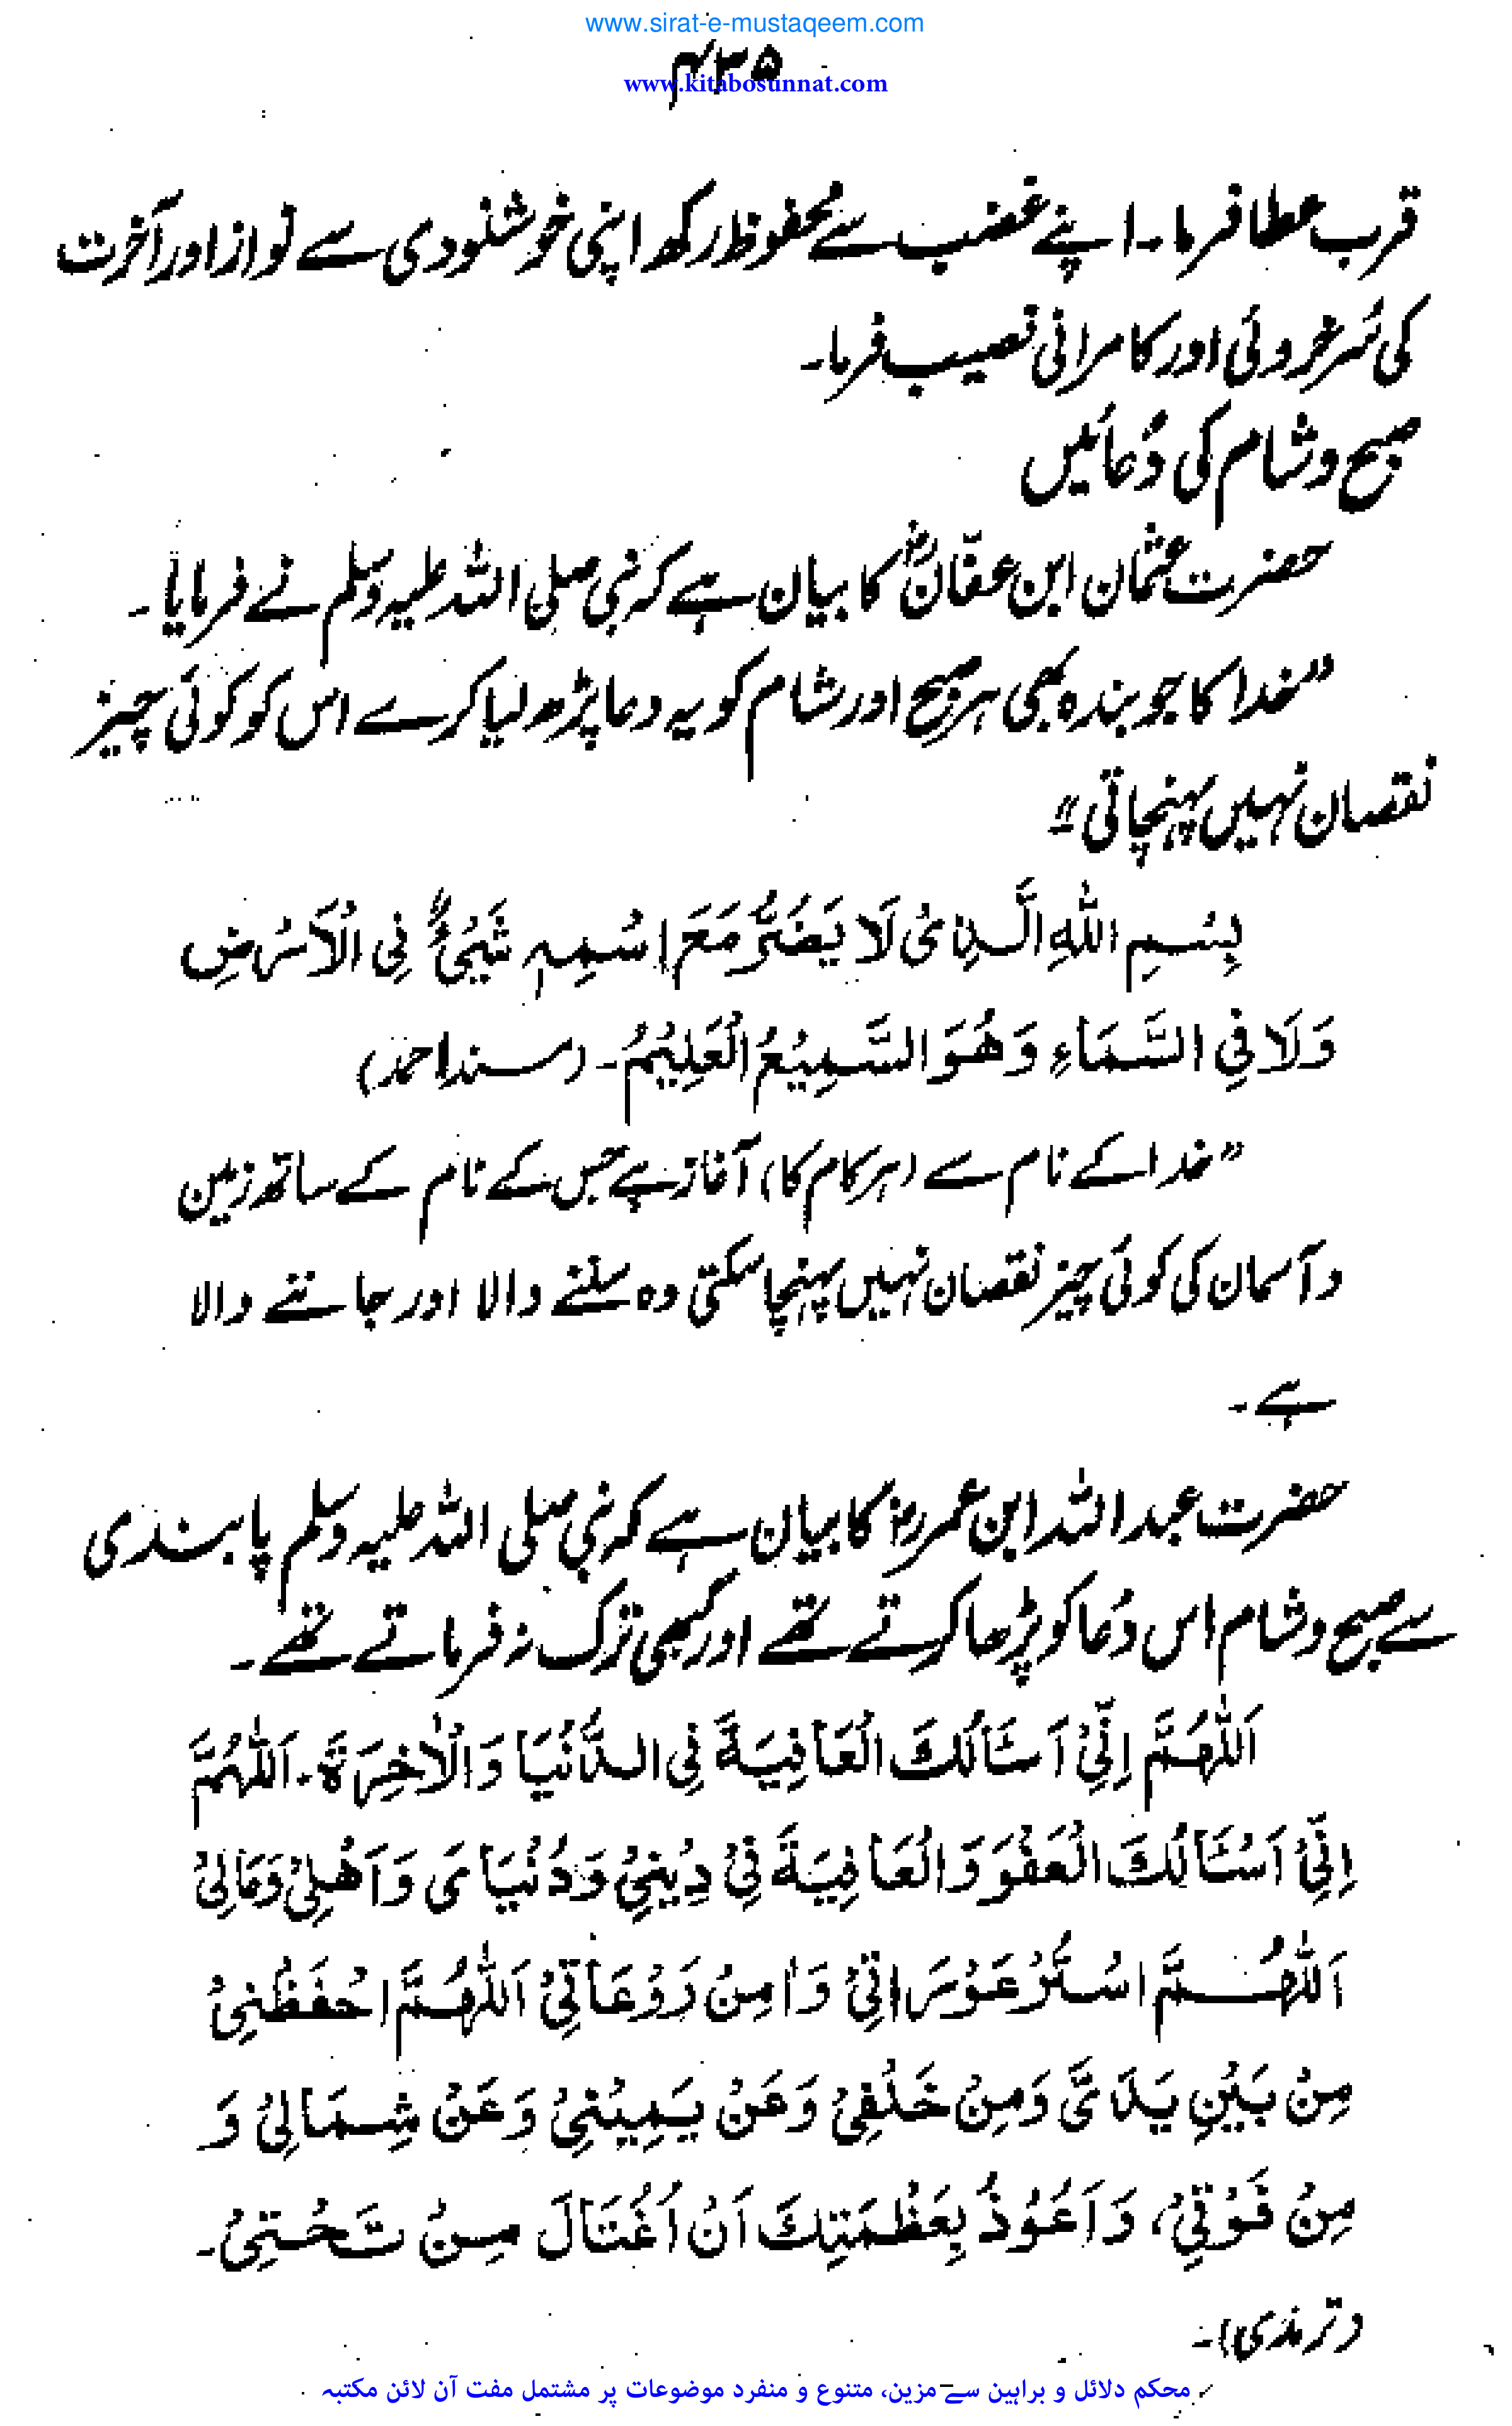 www.sirat-e-mustaqeem.com
۴۳۵
www.kitabosunnat.com
قرب عطا فرما۔ اپنے غضب سے محفوظ رکھ اپنی خوشنودی سے نواز اور آخرت
کی سُرخروئی اور کامرانی نصیب فرما۔
صبح و شام کی دُعائیں
حضرت عثمان ابن عفّانؓ کا بیان ہے کہ نبی صلی اللہ علیہ وسلم نے فرمایا۔
”خدا کا جو بندہ بھی ہر صبح اور شام کو یہ دعا پڑھ لیا کرے اس کو کوئی چیز
نقصان نہیں پہنچاتی“
بِسْمِ اللّٰهِ الَّذِىْ لَا يَضُرُّ مَعَ اسْمِهٖ شَيْئٌ فِى الْاَرْضِ
وَلَا فِى السَّمَاءِ وَهُوَ السَّمِيْعُ الْعَلِيْمُ۔ (مسند احمد)
”خدا کے نام سے (ہر کام کا) آغاز ہے جس کے نام کے ساتھ زمین
و آسمان کی کوئی چیز نقصان نہیں پہنچا سکتی وہ سننے والا اور جاننے والا
ہے۔
حضرت عبد اللہ ابن عمر رضؓ کا بیان ہے کہ نبی صلی اللہ علیہ وسلم پابندی
سے صبح و شام اس دُعا کو پڑھا کرتے تھے اور کبھی ترک نہ فرماتے تھے۔
اَللّٰهُمَّ اِنِّىْ اَسْئَالُكَ الْعَافِيَةَ فِى الدُّنْيَا وَالْاٰخِرَةِ۔ اَللّٰهُمَّ
اِنِّىْ اَسْئَالُكَ الْعَفْوَ وَالْعَافِيَةَ فِىْ دِيْنِىْ وَدُنْيَاىَ وَاَهْلِىْ وَمَالِىْ
اَللّٰهُمَّ اسْتُرْ عَوْرَاتِىْ وَاٰمِنْ رَوْعَاتِىْ اَللّٰهُمَّ احْفَظْنِىْ
مِنْ بَيْنِ يَدَىَّ وَمِنْ خَلْفِىْ وَعَنْ يَمِيْنِىْ وَعَنْ شِمَالِىْ وَ
مِنْ فَوْقِىْ، وَاَعُوْذُ بِعَظْمَتِكَ اَنْ اُغْتَالَ مِنْ تَحْتِىْ۔
(ترمذی)۔
محکم دلائل و براہین سے مزین، متنوع و منفرد موضوعات پر مشتمل مفت آن لائن مکتبہ